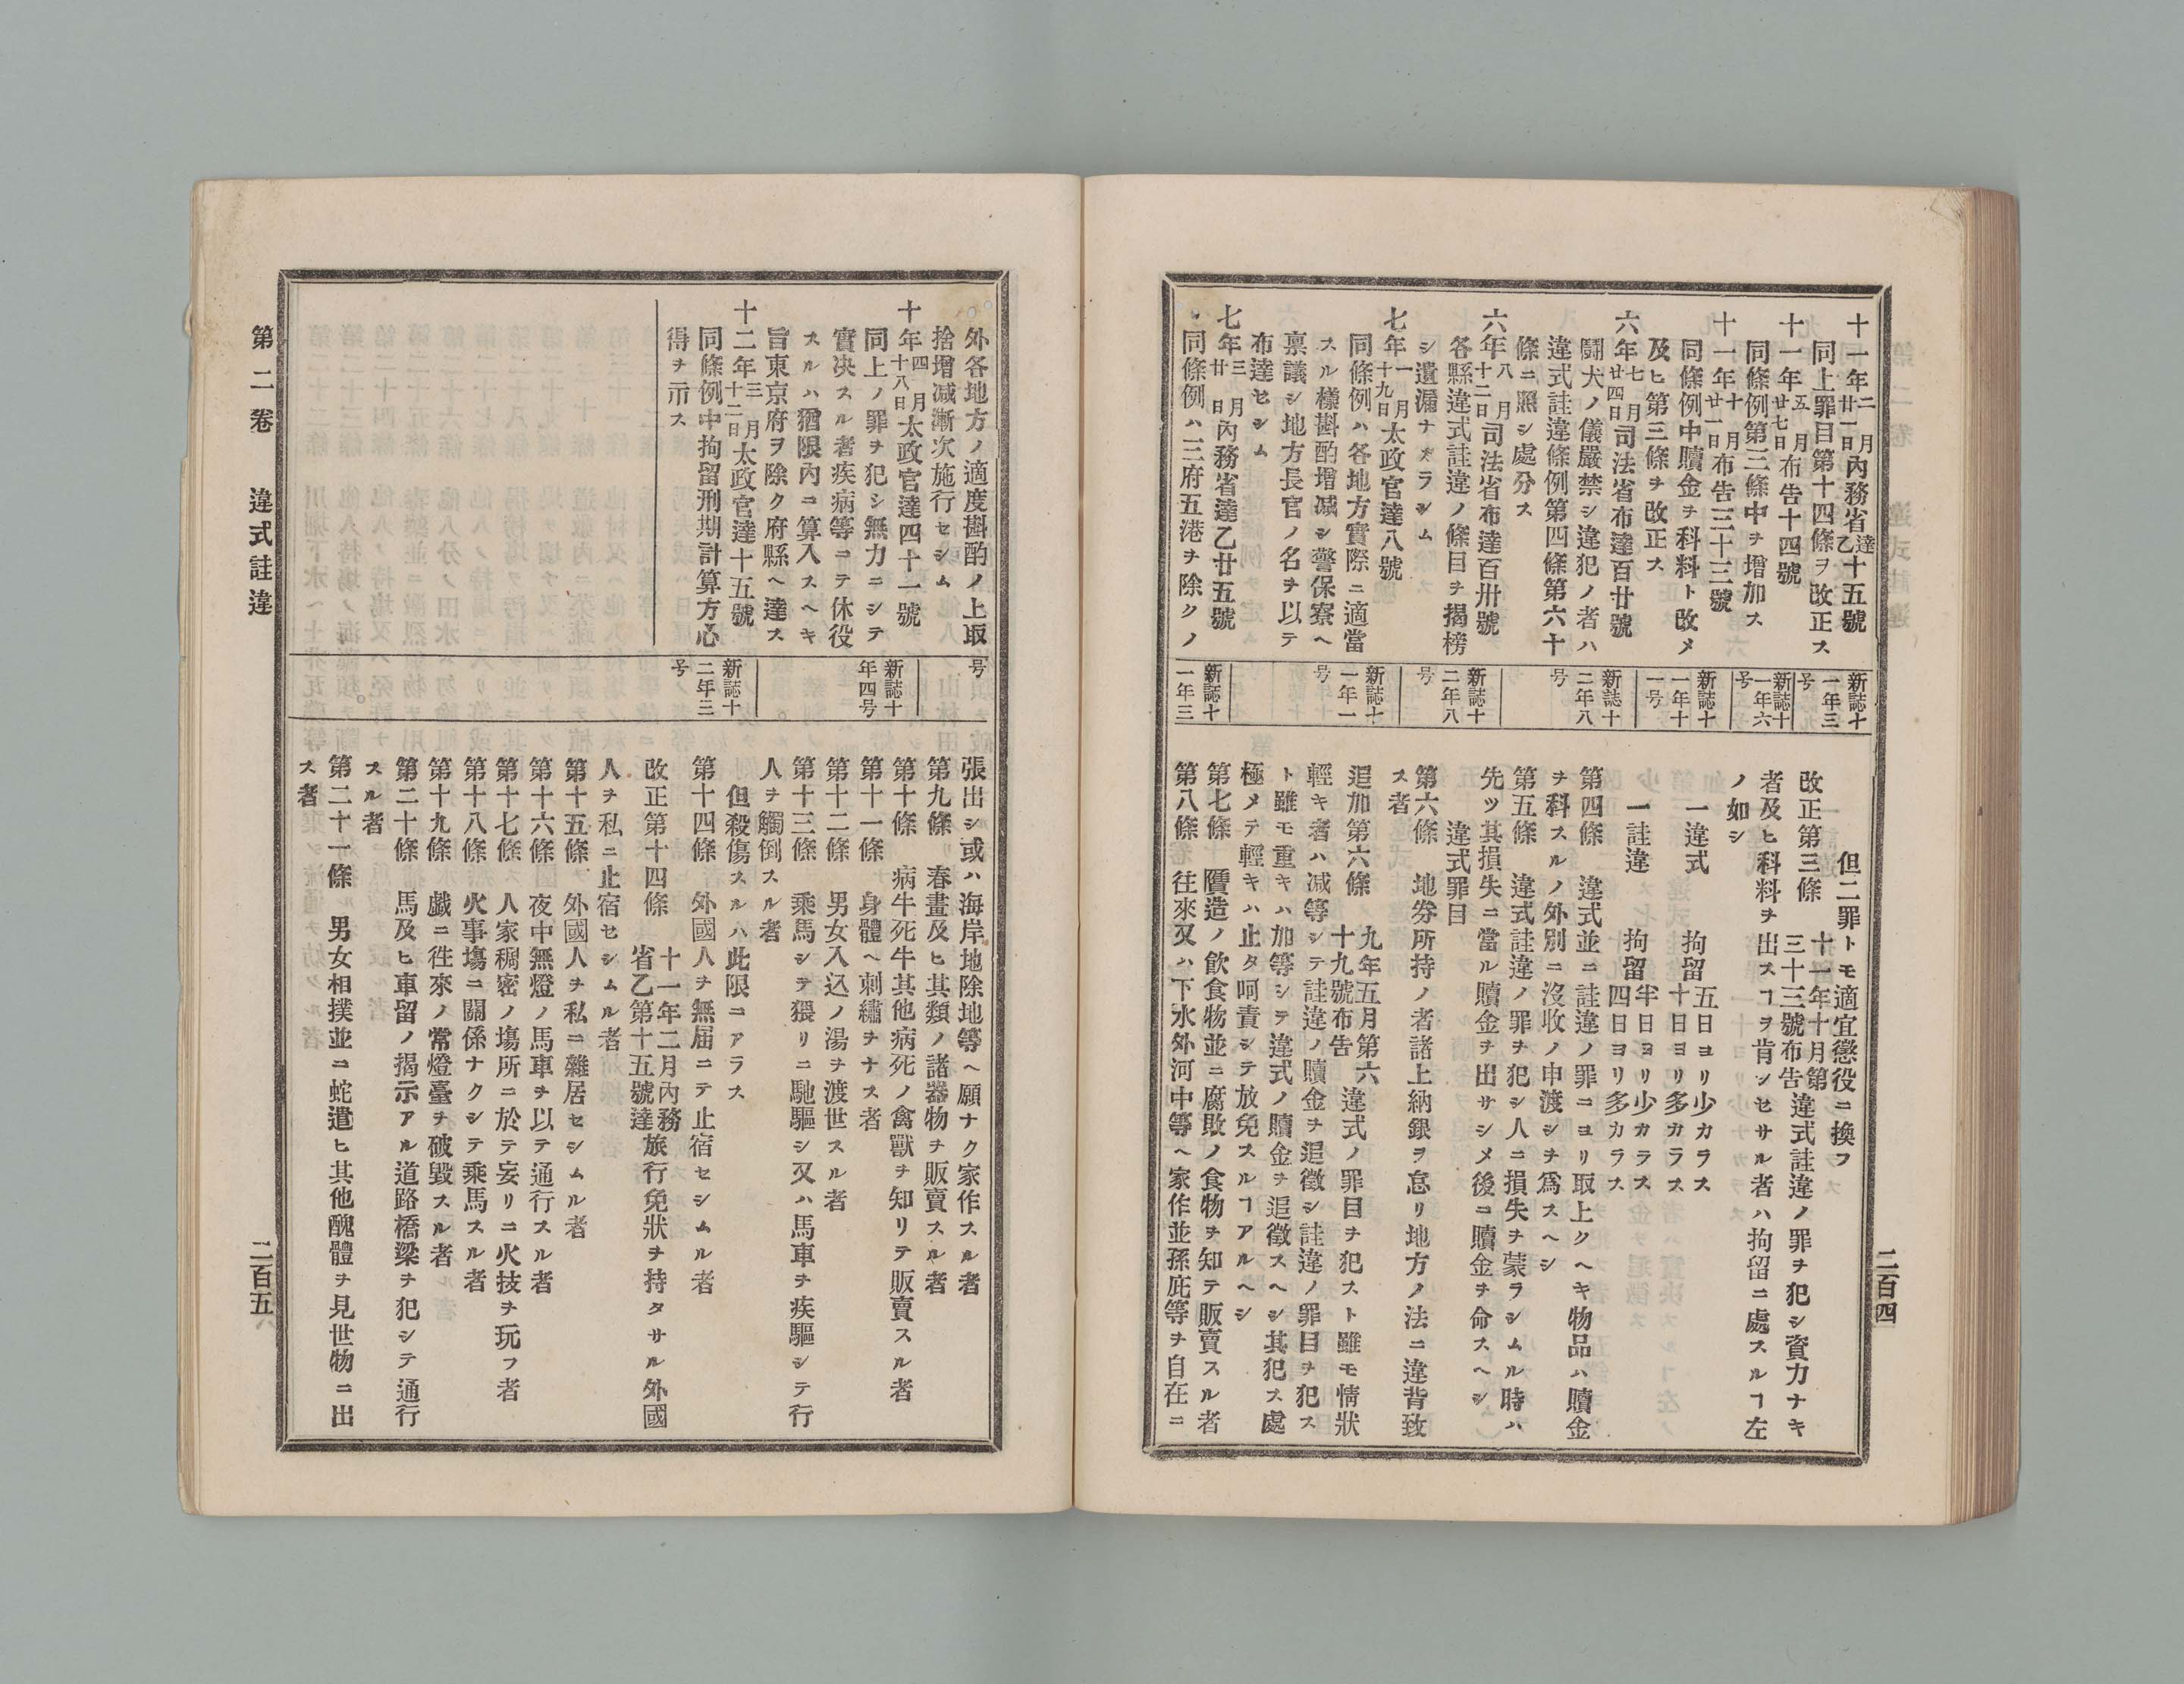 十一年二月廿一日內務省達乙十五號
同上罪目第十四條ヲ改正ス
十一年五月廿七日布告十四號
同條例第三條中ヲ增加ス
十一年十月廿一日布告三十三號
同條例中贖金ヲ科料ト改メ
及ヒ第三條ヲ改正ス
六年七月廿四日司法省布達百廿號
鬪犬ノ儀嚴禁シ違犯ノ者ハ
違式詿違條例第四條第六十
條ニ照シ處分ス
六年八月十二日司法省布達百卅號
各縣違式詿違ノ條目ヲ揭榜
シ遺漏ナカラシム
七年一月十九日太政官達八號
同條例ハ各地方實際ニ適當
スル樣斟酌增減シ警保寮ヘ
稟議シ地方長官ノ名ヲ以テ
布達セシム
七年三月廿日內務省達乙廿五號
同條例ハ三府五港ヲ除クノ
新誌十一年三号
新誌十一年六号
新誌十一年十一号
新誌十二年八号
新誌十二年八号
新誌十一年一号
新誌十一年三
但二罪トモ適宜懲役ニ換フ
改正第三條 十一年十月第三十三號布告 違式詿違ノ罪ヲ犯シ資力ナキ
者及ヒ科料ヲ出スヿヲ肯ンセサル者ハ拘留ニ處スルヿ左
ノ如シ
一違式 拘留 五日ヨリ少カラス十日ヨリ多カラス
一詿違 拘留 半日ヨリ少カラス四日ヨリ多カラス
第四條 違式並ニ詿違ノ罪ニヨリ取上クヘキ物品ハ贖金
ヲ科スルノ外別ニ沒收ノ申渡シヲ爲スヘシ
第五條 違式詿違ノ罪ヲ犯シ人ニ損失ヲ蒙ラシムル時ハ
先ツ其損失ニ當ル贖金ヲ出サシメ後ニ贖金ヲ命スヘシ
違式罪目
第六條 地券所持ノ者諸上納銀ヲ怠リ地方ノ法ニ違背致
ス者
追加第六條 九年五月第六十九號布告 違式ノ罪目ヲ犯スト雖モ情狀
輕キ者ハ減等シテ詿違ノ贖金ヲ追徵シ詿違ノ罪目ヲ犯ス
ト雖モ重キハ加等シテ違式ノ贖金ヲ追徵スヘシ其犯ス處
極メテ輕キハ止タ呵責シテ放免スルヿアルヘシ
第七條 贋造ノ飮食物並ニ腐敗ノ食物ヲ知テ販賣スル者
第八條 往來又ハ下水外河中等ヘ家作並孫庇等ヲ自在ニ
二百四
外各地方ノ適度斟酌ノ上取
捨增減漸次施行セシム
十年四月十八日太政官達四十一號
同上ノ罪ヲ犯シ無力ニシテ
實決スル者疾病等ニテ休役
スルハ猶限內ニ算入スヘキ
旨東京府ヲ除ク府縣ヘ達ス
十二年三月十二日太政官達十五號
同條例中拘留刑期計算方心
得ヲ示ス
号
新誌十年四号
新誌十二年三号
張出シ或ハ海岸地除地等ヘ願ナク家作スル者
第九條 春畫及ヒ其類ノ諸器物ヲ販賣スル者
第十條 病牛死牛其他病死ノ禽獸ヲ知リテ販賣スル者
第十一條 身體ヘ刺繡ヲナス者
第十二條 男女入込ノ湯ヲ渡世スル者
第十三條 乘馬シテ猥リニ馳驅シ又ハ馬車ヲ疾驅シテ行
人ヲ觸倒スル者
但殺傷スルハ此限ニアラス
第十四條 外國人ヲ無届ニテ止宿セシムル者
改正第十四條 十一年二月內務省乙第十五號達 旅行免狀ヲ持タサル外國
人ヲ私ニ止宿セシムル者
第十五條 外國人ヲ私ニ雜居セシムル者
第十六條 夜中無燈ノ馬車ヲ以テ通行スル者
第十七條 人家稠密ノ塲所ニ於テ妄リニ火技ヲ玩フ者
第十八條 火事塲ニ關係ナクシテ乘馬スル者
第十九條 戯ニ徃來ノ常燈臺ヲ破毀スル者
第二十條 馬及ヒ車留ノ揭示アル道路橋梁ヲ犯シテ通行
スル者
第二十一條 男女相撲並ニ蛇遣ヒ其他醜體ヲ見世物ニ出
ス者
第二卷 違式詿違
二百五